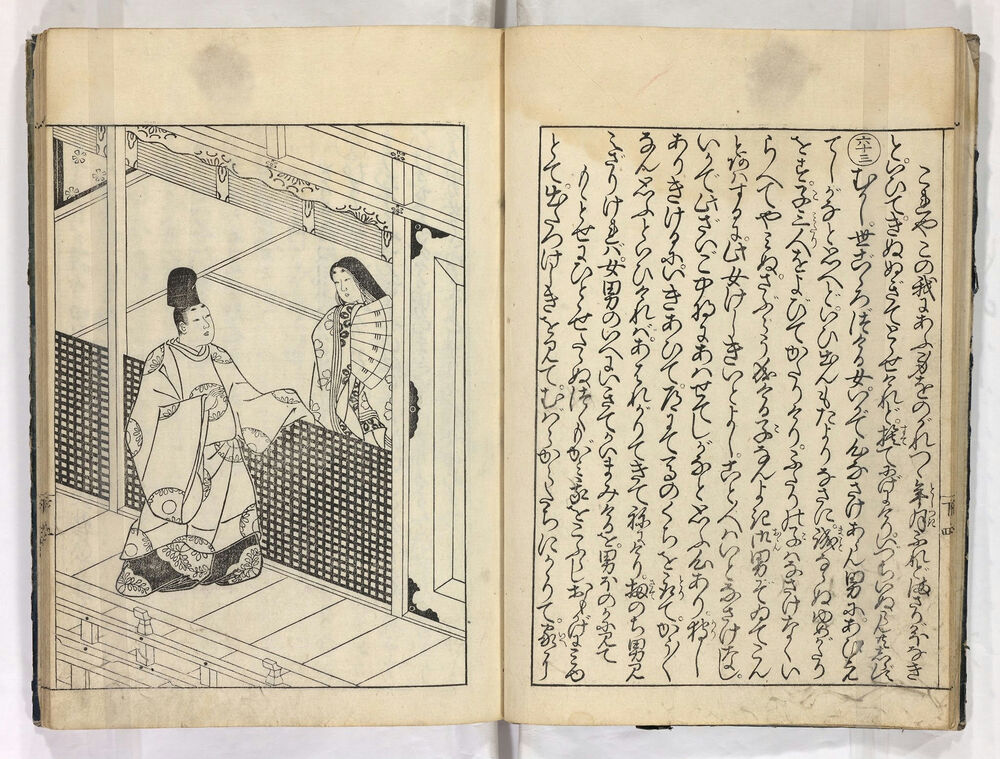 これやこの我にあふみをのがれつゝ年月ふれどまさりがほなき
といひてきぬぬぎてとらせけれど捨てにげにけりいづちいぬらんともしらず
六十三 むかし世ごころつける女いかで心なさけあらん男にあひえ
てしがなと思へどいひ出んもたよりなさに誠ならぬゆめがたり
をす子三人をよびてかたりけりふたりの子はなさけなくい
らへてやみぬさぶらう成ける子なんよき御男ぞいでこん
とあはするに此女けしきいとよしこと人はいとなさけなし
いかで此ざいご中将にあはせてしがなと思ふ心あり狩し
ありきけるにいきあひて道にてむまのくちを取てかう〳〵
なん思ふといひければあはれがりてきてねにけり扨のち男見
えざりければ女男のいへにいきてかいまみけるを男ほのかに見て
もゝとせにひとゝせたらぬつくもがみ我をこふらしおもかげにみゆ
とて出たつけしきを見てむばらからたちにかゝりて家に